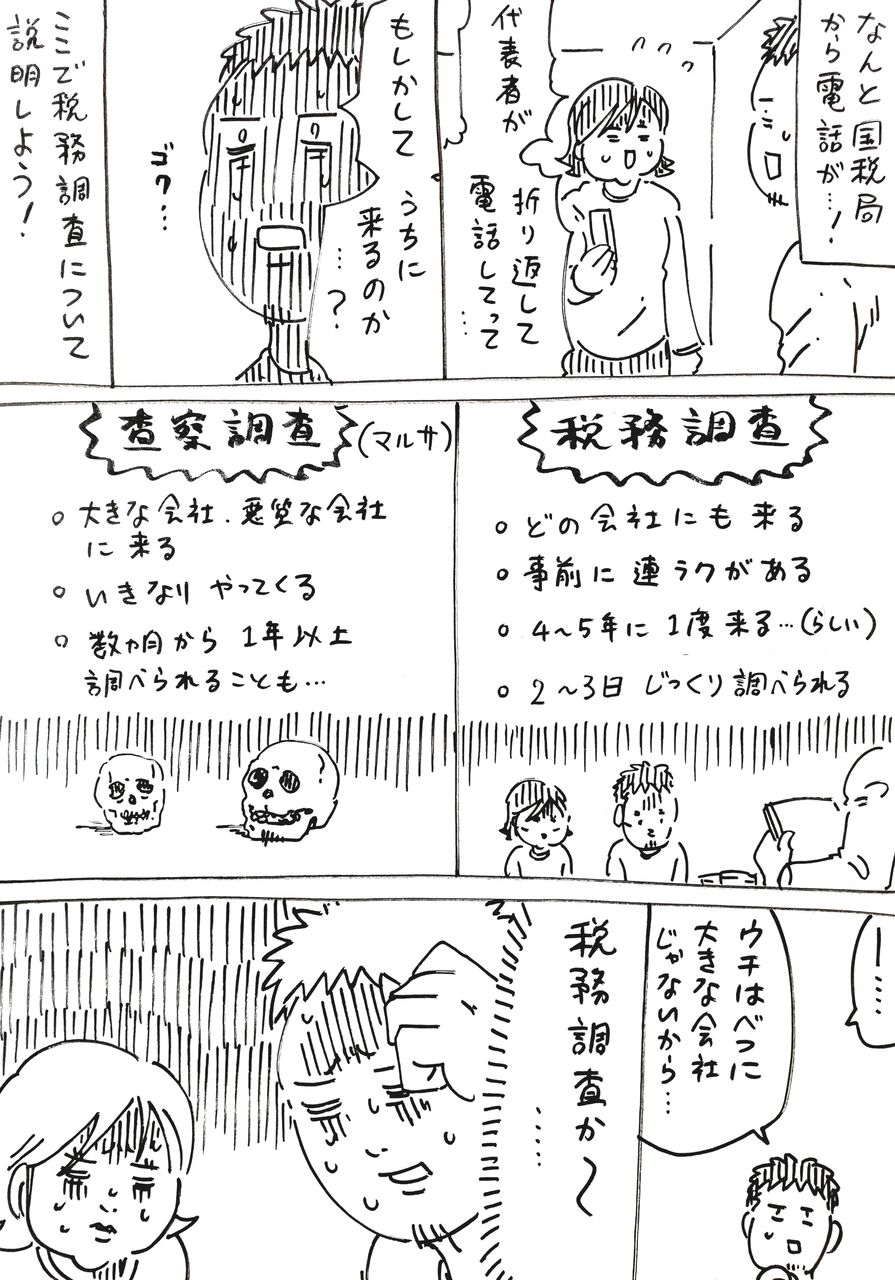 なんと国税局
から電話が…！
代表者が
折り返して
電話してって
…
もしかして
うちに
来るのか
…？
ゴク…
ここで税務調査について
説明しよう！
税務調査
○どの会社にも来る
○事前に連ラクがある
○4〜5年に1度来る…(らしい)
○2〜3日じっくり調べられる
査察調査(マルサ)
○大きな会社.悪質な会社
に来る
○いきなりやってくる
○数ヵ月から1年以上
調べられることも…
……
ウチはべつに
大きな会社
じゃないから…
税務調査か〜
……